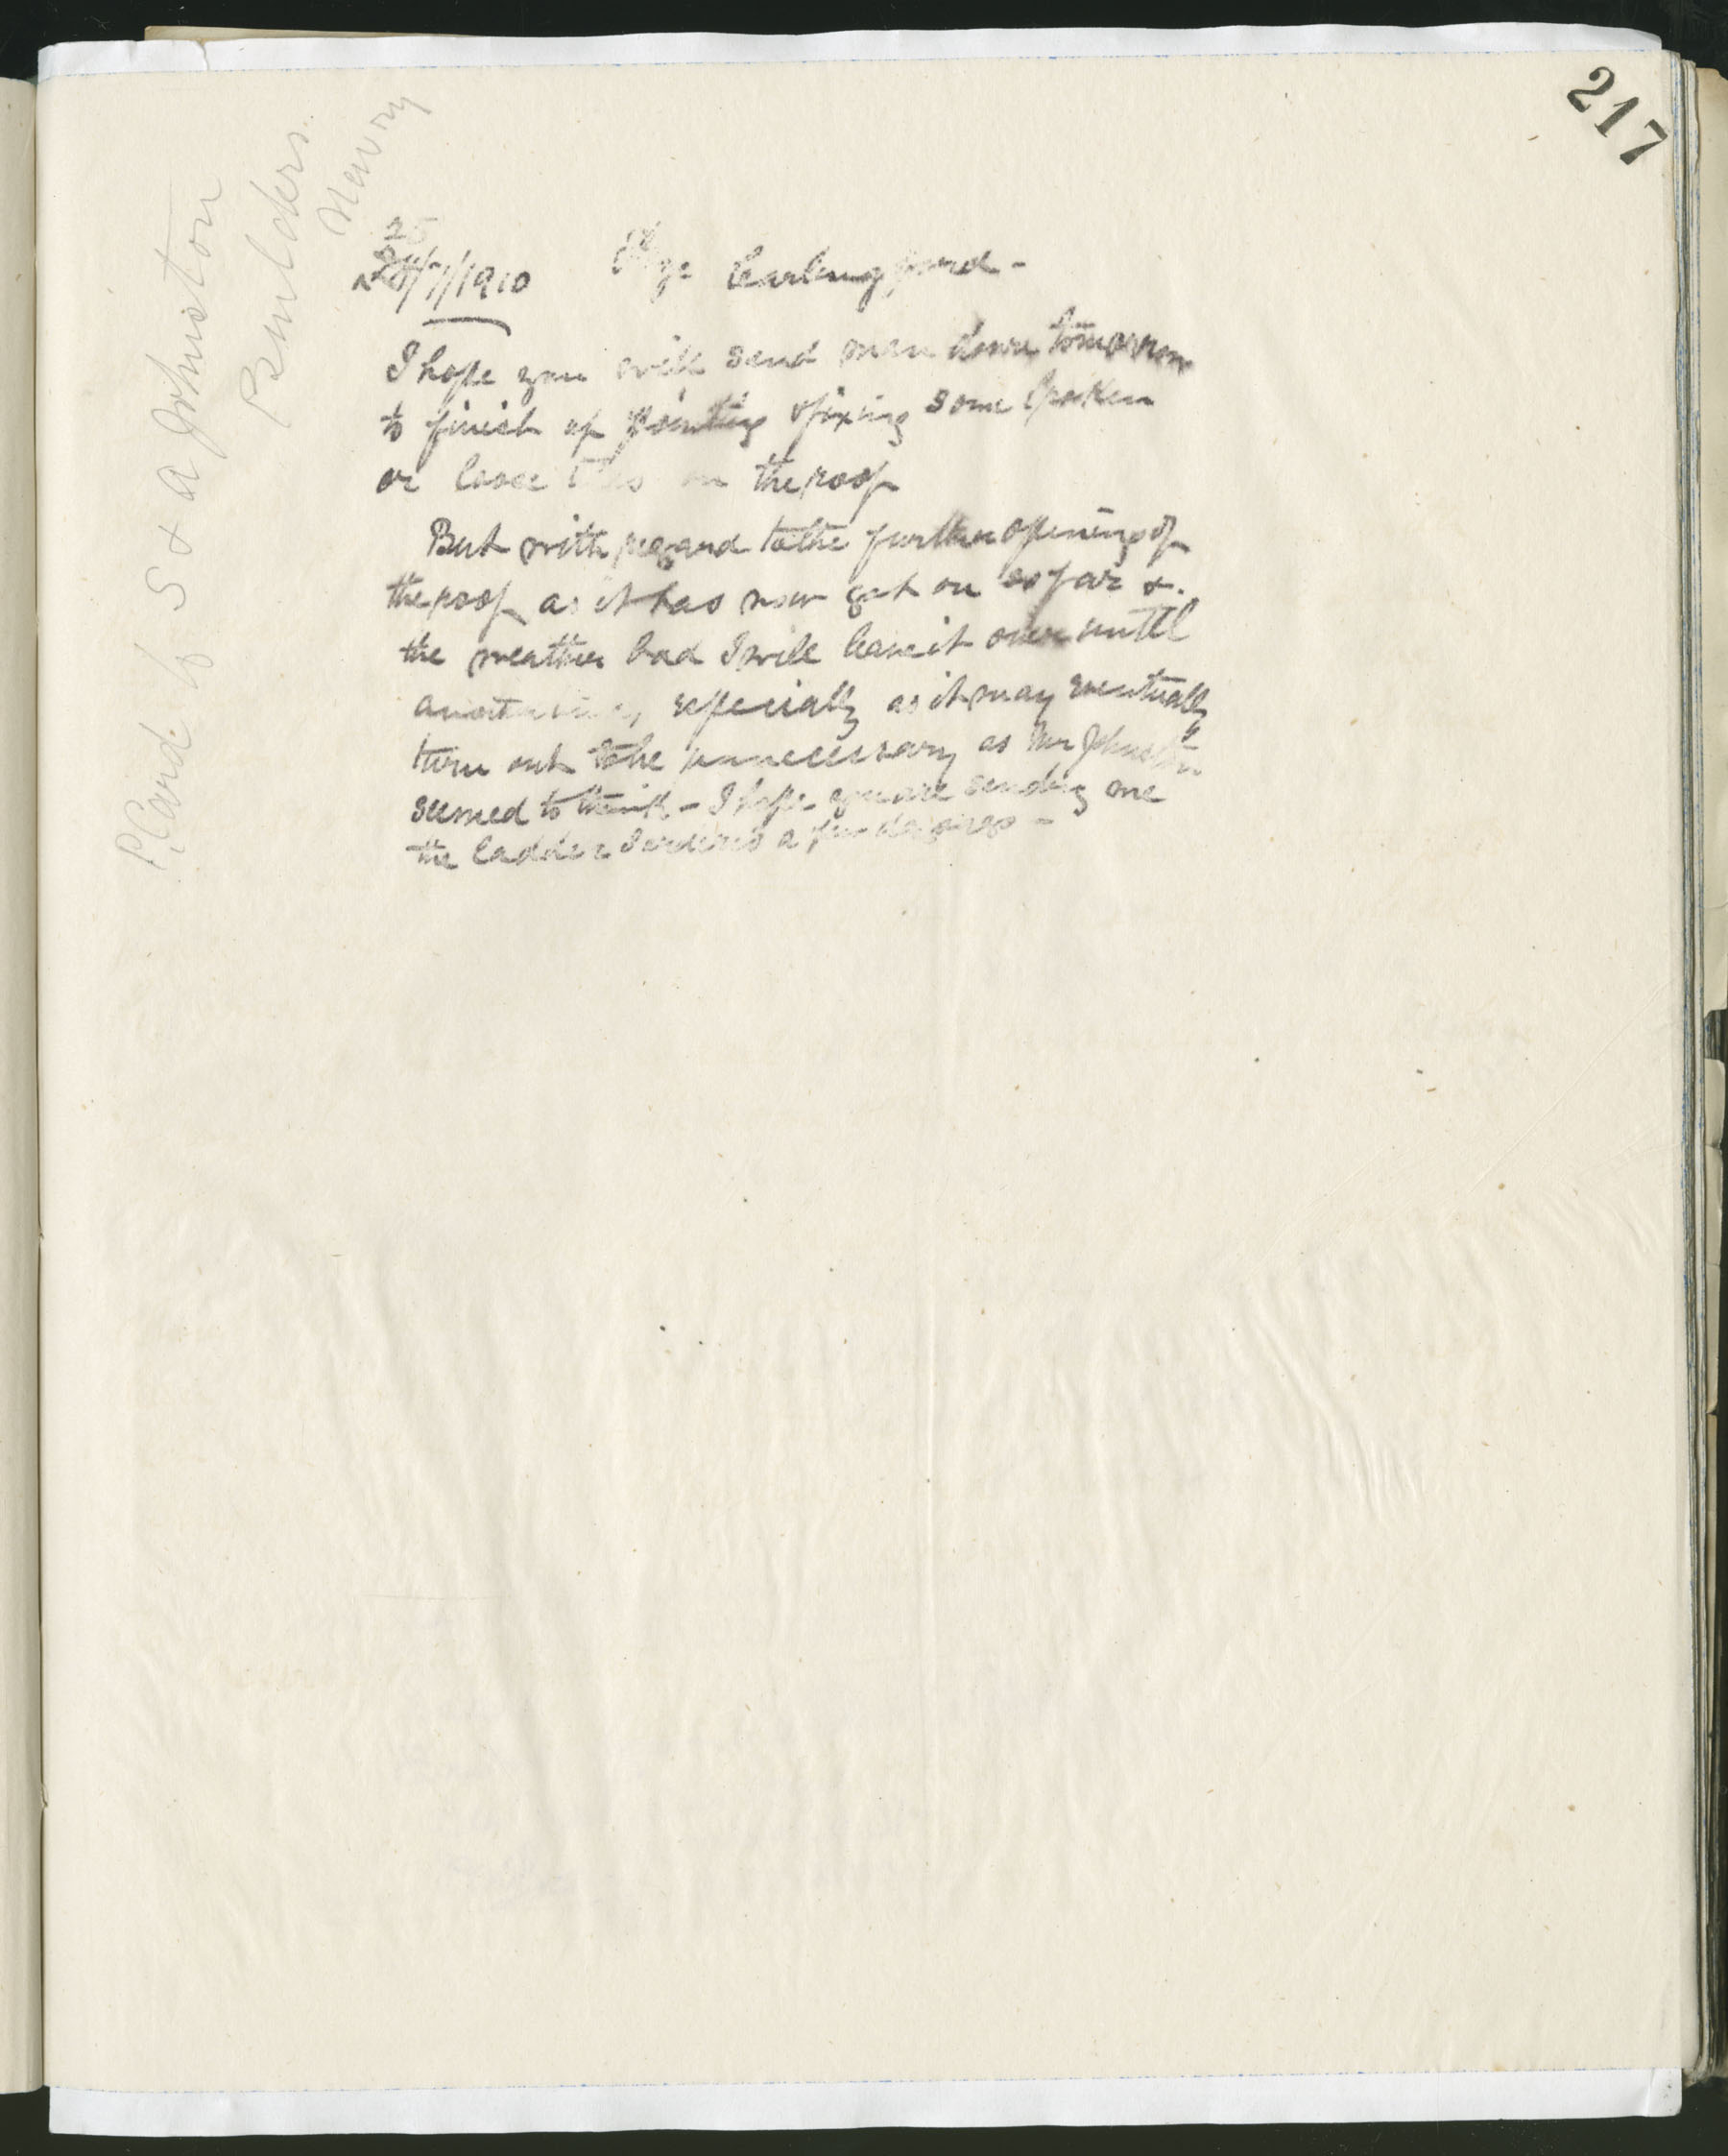 217
P. Card to S & A Johnston
Builders
Newry
25
24/7/1910 Carlingford -
I hope you will send men down tomorrow
to finish up pointing & fixing some broken
or loose tiles on the roof
But with regard to the further opening of
the roof as it has now got on so far &
the weather bad I will leave it over until
another time, especially as it may eventually
turn out to be unnecessary as Mr Johnston
seemed to think - I hope you are sending me
the ladder I ordered a few days ago -